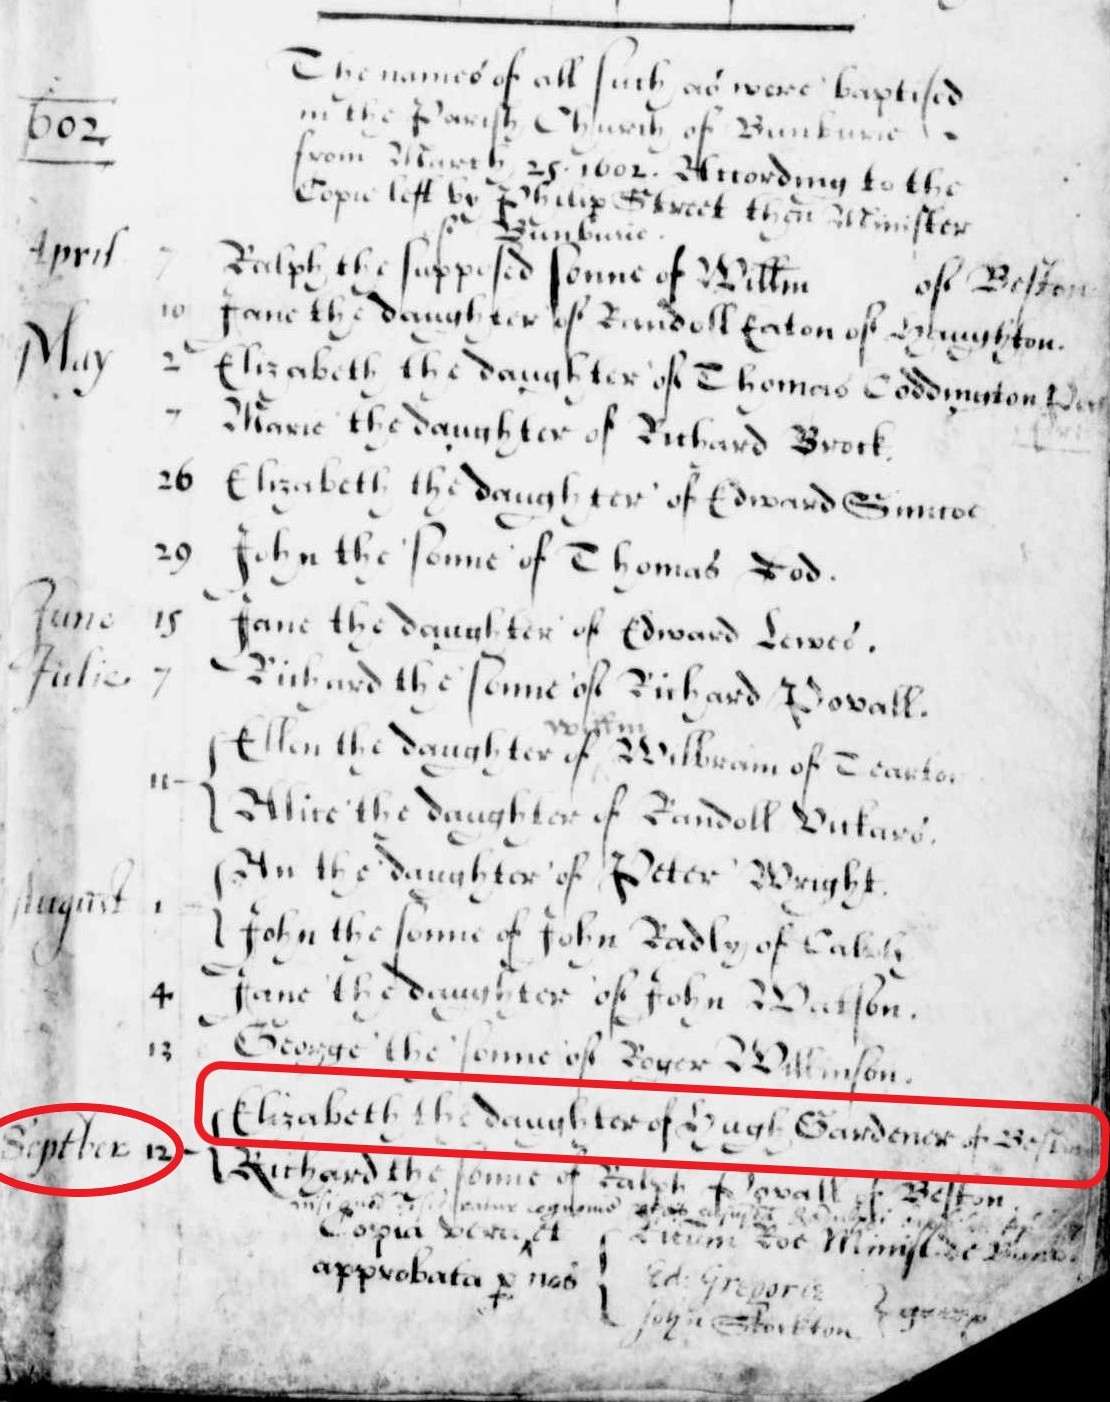 1602
The names of all such as were baptised
in the Parish Church of Bunburie
from March 25. 1602. According to the
Copie left by Philip Street then Minister
Bunburie.
April 7 Ralph the supposed sonne of Willm of Beston
10 Jane the daughter of Randoll Eaton of Haughton.
May 2 Elizabeth the daughter of Thomas Coddington
7 Marie the daughter of Richard Brock.
26 Elizabeth the daughter of Edward Simcoe
29 John the sonne of Thomas Rod.
June 15 Jane the daughter of Edward Lewes.
Julie 7 Richard the sonne of Richard Povall.
willm
Ellen the daughter of Wilbram of Tearton
11
Alice the daughter of Randoll Vickars.
An the daughter of Peter Wright.
August 1
John the sonne of John Radly of Calvly
4 Jane the daughter of John Watson.
13 George the sonne of Roger Wilkinson.
Elizabeth the daughter of Hugh Gardener of Beston
Septber 12
Richard the sonne of Ralph Povall of Beston.
Copia vera et
approbata p nos
Roe Minist de
Ed: Gregorie
John Stockton